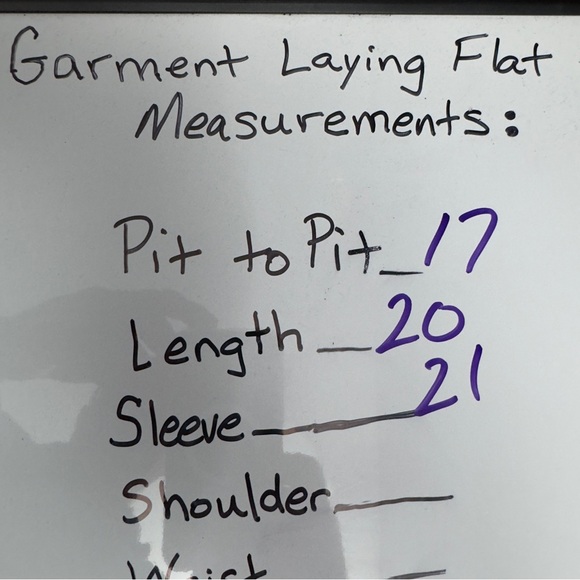 Garment Laying Flat
Measurements:
Pit to Pit_17
Length_20
Sleeve_21
Shoulder_
Waist_